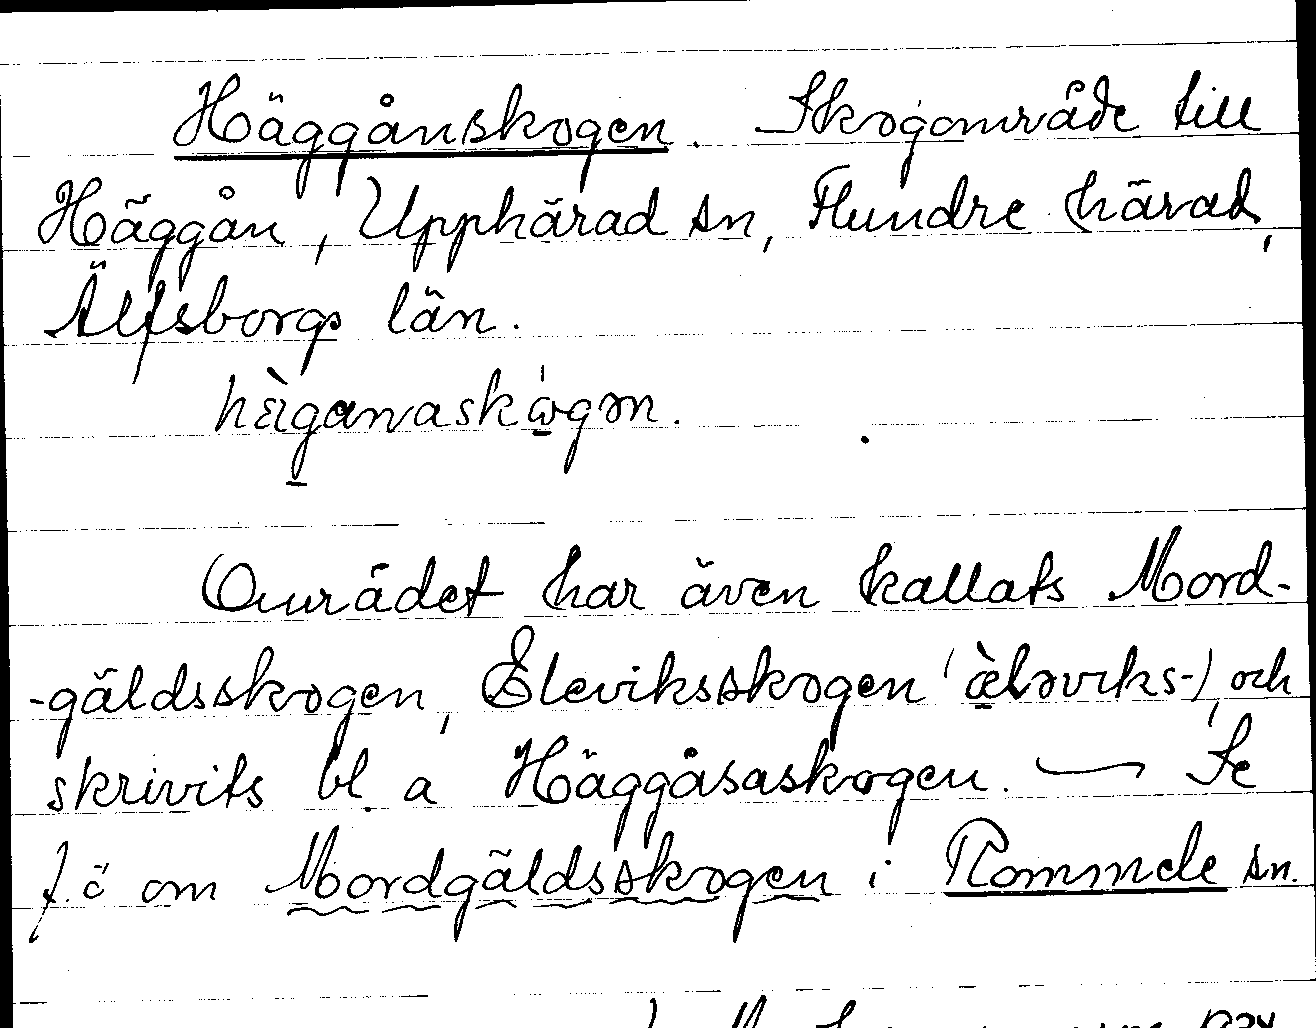 Häggånskogen. Skogområde till
Häggån, Upphärad sn, Flundre härad,
Älfsborgs län.
Området har även kallats Mord-
-gäldsskogen, Eleviksskogen (æ̀ləviks-), och
skrivits bl. a Häggåsaskogen. — Se
f. ö om Mordgäldsskogen i Rommele sn.